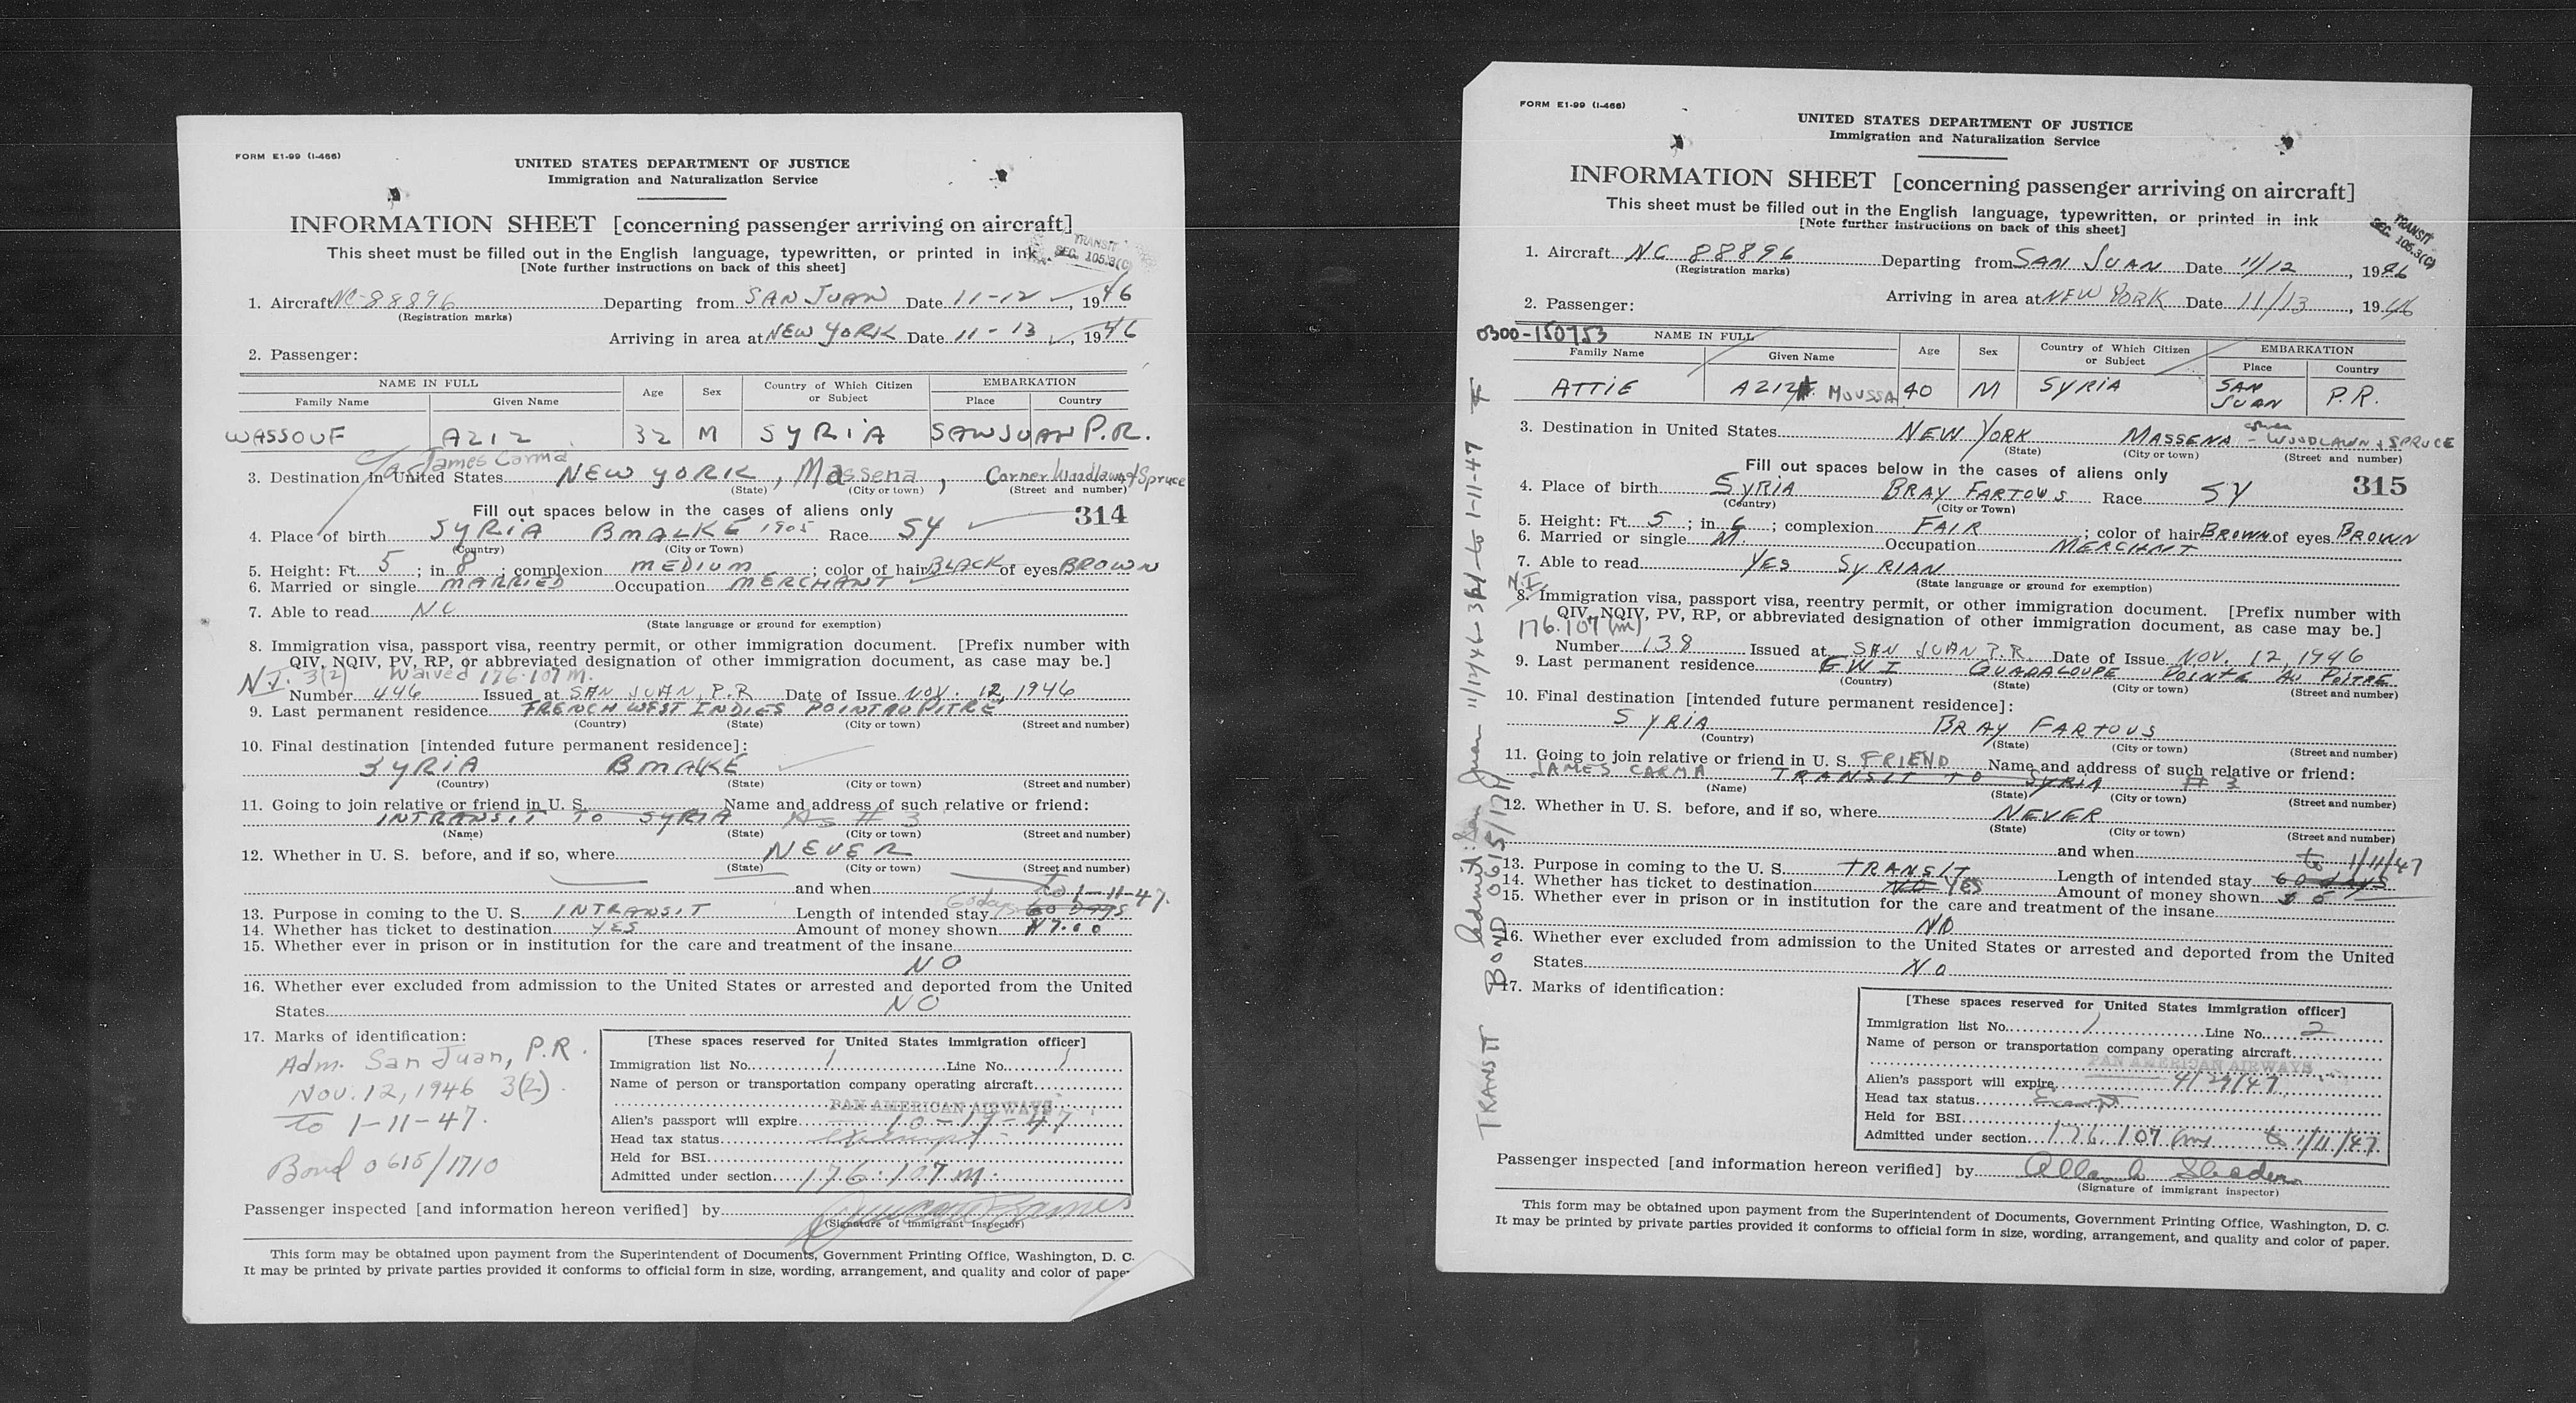 FORM E1-99 (I-466)
UNITED STATES DEPARTMENT OF JUSTICE
Immigration and Naturalization Service
INFORMATION SHEET [concerning passenger arriving on aircraft]
This sheet must be filled out in the English language, typewritten, or printed in ink
[Note further instructions on back of this sheet]
TRANSIT
SEC. 105.3(C)
1. Aircraft NC-88896 Departing from SAN JUAN Date 11-12, 1946
(Registration marks)
Arriving in area at NEW YORK Date 11-13, 1946
2. Passenger:
NAME IN FULL Age Sex Country of Which Citizen or Subject EMBARKATION
Family Name Given Name Place Country
WASSOUF AZIZ 32 M SYRIA SAN JUAN P.R.
c/o James Carma
3. Destination in United States NEW YORK, Massena, Corner Woodlawn & Spruce
(State) (City or town) (Street and number)
Fill out spaces below in the cases of aliens only 314
4. Place of birth SYRIA BMALKE 1905 Race SY
(Country) (City or Town)
5. Height: Ft. 5; in 8; complexion MEDIUM; color of hair BLACK of eyes BROWN
6. Married or single MARRIED Occupation MERCHANT
7. Able to read NO
(State language or ground for exemption)
8. Immigration visa, passport visa, reentry permit, or other immigration document. [Prefix number with
QIV, NQIV, PV, RP, or abbreviated designation of other immigration document, as case may be.]
N.I. 3(2) Waived 176.107 M.
Number 446 Issued at SAN JUAN, P.R Date of Issue NOV. 12, 1946
9. Last permanent residence FRENCH WEST INDIES POINTAUPITRE
(Country) (State) (City or town) (Street and number)
10. Final destination [intended future permanent residence]:
SYRIA BMALKE
(Country) (State) (City or town) (Street and number)
11. Going to join relative or friend in U. S. Name and address of such relative or friend:
INTRANSIT TO SYRIA As # 3
(Name) (State) (City or town) (Street and number)
12. Whether in U. S. before, and if so, where NEVER
(State) (City or town) (Street and number)
and when to 1-11-47.
13. Purpose in coming to the U. S. INTRANSIT Length of intended stay 60 days 60 DAYS
14. Whether has ticket to destination YES Amount of money shown 7.00
15. Whether ever in prison or in institution for the care and treatment of the insane
NO
16. Whether ever excluded from admission to the United States or arrested and deported from the United
States NO
17. Marks of identification:
Adm. San Juan, P.R.
Nov. 12, 1946 3(2).
to 1-11-47.
Bond 0615/1710
[These spaces reserved for United States immigration officer]
Immigration list No. 1 Line No. 1
Name of person or transportation company operating aircraft
PAN AMERICAN AIRWAYS
Alien's passport will expire 10-17-47
Head tax status exempt
Held for BSI
Admitted under section 176.107 M.
Passenger inspected [and information hereon verified] by
(Signature of immigrant inspector)
This form may be obtained upon payment from the Superintendent of Documents, Government Printing Office, Washington, D. C.
It may be printed by private parties provided it conforms to official form in size, wording, arrangement, and quality and color of paper
FORM E1-99 (I-466)
UNITED STATES DEPARTMENT OF JUSTICE
Immigration and Naturalization Service
INFORMATION SHEET [concerning passenger arriving on aircraft]
This sheet must be filled out in the English language, typewritten, or printed in ink
[Note further instructions on back of this sheet]
TRANSIT
SEC. 105.3(C)
1. Aircraft NC 88896 Departing from SAN JUAN Date 11/12, 1946
(Registration marks)
2. Passenger: Arriving in area at NEW YORK Date 11/13, 1946
0300-150753
NAME IN FULL Age Sex Country of Which Citizen or Subject EMBARKATION
Family Name Given Name Place Country
ATTIE AZIZ MOUSSA 40 M SYRIA SAN JUAN P.R.
3. Destination in United States NEW YORK MASSENA - corner WOODLAWN & SPRUCE
(State) (City or town) (Street and number)
Fill out spaces below in the cases of aliens only 315
4. Place of birth SYRIA BRAY FARTOUS Race SY
(Country) (City or Town)
5. Height: Ft. 5; in 6; complexion FAIR; color of hair BROWN of eyes BROWN
6. Married or single M. Occupation MERCHNT
7. Able to read YES SYRIAN
(State language or ground for exemption)
N.I.
8. Immigration visa, passport visa, reentry permit, or other immigration document. [Prefix number with
QIV, NQIV, PV, RP, or abbreviated designation of other immigration document, as case may be.]
176.107 (m)
Number 138 Issued at SAN JUAN P.R. Date of Issue NOV. 12, 1946
9. Last permanent residence F W I GUADALOUPE POINTE AU PITRE
(Country) (State) (City or town) (Street and number)
10. Final destination [intended future permanent residence]:
SYRIA BRAY FARTOUS
(Country) (State) (City or town) (Street and number)
11. Going to join relative or friend in U. S. FRIEND Name and address of such relative or friend:
JAMES CARMA TRANSIT TO SYRIA # 3
(Name) (State) (City or town) (Street and number)
12. Whether in U. S. before, and if so, where NEVER
(State) (City or town) (Street and number)
and when to 1/11/47
13. Purpose in coming to the U. S. TRANSIT Length of intended stay 60 days
14. Whether has ticket to destination NO YES Amount of money shown
15. Whether ever in prison or in institution for the care and treatment of the insane
NO
16. Whether ever excluded from admission to the United States or arrested and deported from the United
States NO
17. Marks of identification:
TRANSIT BOND 0615/1711
Admitted: San Juan 11/12/46 to 1-11-47
[These spaces reserved for United States immigration officer]
Immigration list No. 1 Line No. 2
Name of person or transportation company operating aircraft
PAN AMERICAN AIRWAYS
Alien's passport will expire 4/29/47
Head tax status Exempt
Held for BSI
Admitted under section 176.107 (m) to 1/11/47
Passenger inspected [and information hereon verified] by
(Signature of immigrant inspector)
This form may be obtained upon payment from the Superintendent of Documents, Government Printing Office, Washington, D. C.
It may be printed by private parties provided it conforms to official form in size, wording, arrangement, and quality and color of paper.